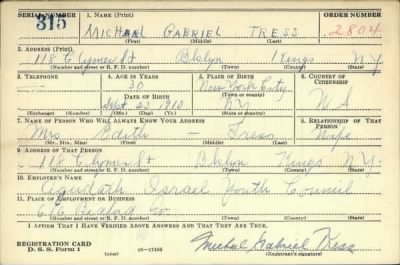 SERIAL NUMBER 1. NAME (Print) ORDER NUMBER
315 MICHAEL GABRIEL TRESS 2804
(First) (Middle) (Last)
2. ADDRESS (Print)
118 Clymer St Bklyn Kings NY
(Number and street or R. F. D. number) (Town) (County) (State)
3. TELEPHONE 4. AGE IN YEARS 5. PLACE OF BIRTH 6. COUNTRY OF CITIZENSHIP
30 New York City
DATE OF BIRTH (Town or county)
Sept 23 1910 NY US
(Mo.) (Day) (Yr.) (State or country)
7. NAME OF PERSON WHO WILL ALWAYS KNOW YOUR ADDRESS 8. RELATIONSHIP OF THAT PERSON
Mrs Edith — Tress Wife
(Mr., Mrs., Miss) (First) (Middle) (Last)
9. ADDRESS OF THAT PERSON
118 Clymer St Bklyn Kings N.Y.
(Number and street or R. F. D. number) (Town) (County) (State)
10. EMPLOYER'S NAME
Agudath Israel Youth Council
11. PLACE OF EMPLOYMENT OR BUSINESS
Bedford
(Number and street or R. F. D. number) (Town) (County) (State)
I AFFIRM THAT I HAVE VERIFIED ABOVE ANSWERS AND THAT THEY ARE TRUE.
REGISTRATION CARD
D. S. S. Form 1 (over) 16—17105 Michael Gabriel Tress
(Registrant's signature)